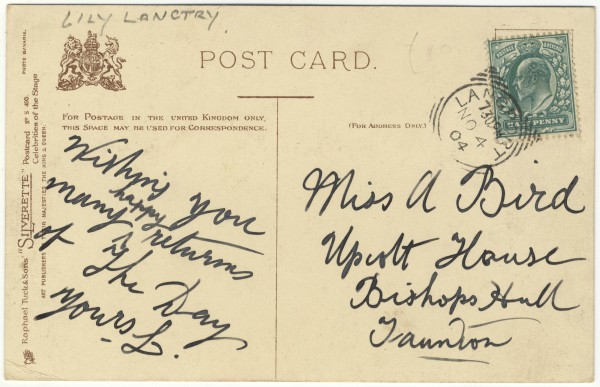 LILY LANGTRY.
POST CARD.
FOR POSTAGE IN THE UNITED KINGDOM ONLY,
THIS SPACE MAY BE USED FOR CORRESPONDENCE.
(FOR ADDRESS ONLY.)
Wishing you
many happy
returns
of the Day
Yours L.
Miss A Bird
Upcott House
Bishops Hull
Taunton
NO 4
04
PENNY
Raphael Tuck & Sons' "SILVERETTE" Postcard Nº S 400.
Celebrities of the Stage
ART PUBLISHERS TO THEIR MAJESTIES THE KING & QUEEN.